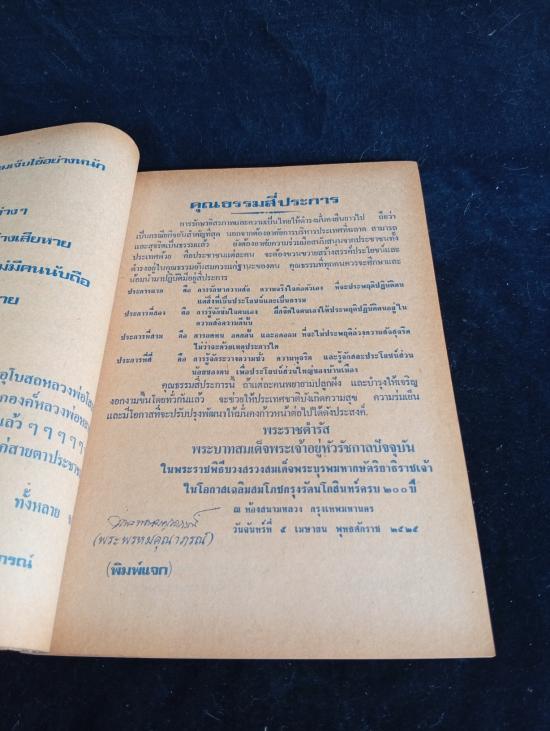 มเจ็บไข้อย่างหนัก
ต่างๆ
างเสียหาย
ไม่มีคนนับถือ
าย
อุโบสถหลวงพ่อโส
กองค์หลวงพ่อ
แล้ว ๆ ๆ ๆ ๆ ๆ
ค่สายตาประชา
ทั้งหลาย
ภรณ์
คุณธรรมสี่ประการ
การรักษาอิสรภาพและความเป็นไทยให้ดำรงมั่นคงยืนยาวไป ถือว่า
เป็นกรณียกิจอันสำคัญที่สุด นอกจากต้องอาศัยการบริหารประเทศที่ฉลาด สามารถ
และสุจริตเป็นธรรมแล้ว ยังต้องอาศัยความร่วมมือสนับสนุนจากประชาชนทั้ง
ประเทศด้วย คือประชาชนแต่ละคน จะต้องขวนขวายสร้างสรรค์ประโยชน์และ
ดำรงอยู่ในคุณธรรมอันสมควรแก่ฐานะของตน คุณธรรมที่ทุกคนควรจะศึกษาและ
น้อมนำมาปฏิบัติมีอยู่สี่ประการ
ประการแรก คือ การรักษาความสัจ ความจริงใจต่อตัวเอง ที่จะประพฤติปฏิบัติตน
แต่สิ่งที่เป็นประโยชน์และเป็นธรรม
ประการที่สอง คือ การรู้จักข่มใจตนเอง ฝึกจิตใจตนเองให้ประพฤติปฏิบัติตนอยู่ใน
ความสัจความดีนั้น
ประการที่สาม คือ การอดทน อดกลั้น และอดออม ที่จะไม่ประพฤติล่วงความสัจสุจริต
ไม่ว่าจะด้วยเหตุประการใด
ประการที่สี่ คือ การรู้จักระวางความชั่ว ความทุจริต และรู้จักสละประโยชน์ส่วน
น้อยของตน เพื่อประโยชน์ส่วนใหญ่ของบ้านเมือง
คุณธรรมสี่ประการนี้ ถ้าแต่ละคนพยายามปลูกฝัง และบำรุงให้เจริญ
งอกงามขึ้นโดยทั่วกันแล้ว จะช่วยให้ประเทศชาติบังเกิดความสุข ความร่มเย็น
และมีโอกาสที่จะปรับปรุงพัฒนาให้มั่นคงก้าวหน้าต่อไปได้ดังประสงค์.
พระราชดำรัส
พระบาทสมเด็จพระเจ้าอยู่หัวรัชกาลปัจจุบัน
ในพระราชพิธีบวงสรวงสมเด็จพระบุรพมหากษัตริยาธิราชเจ้า
ในโอกาสเฉลิมสมโภชกรุงรัตนโกสินทร์ครบ ๒๐๐ ปี
ณ ท้องสนามหลวง กรุงเทพมหานคร
วันจันทร์ที่ ๕ เมษายน พุทธศักราช ๒๕๒๕
(พระพรหมคุณาภรณ์)
(พิมพ์แจก)